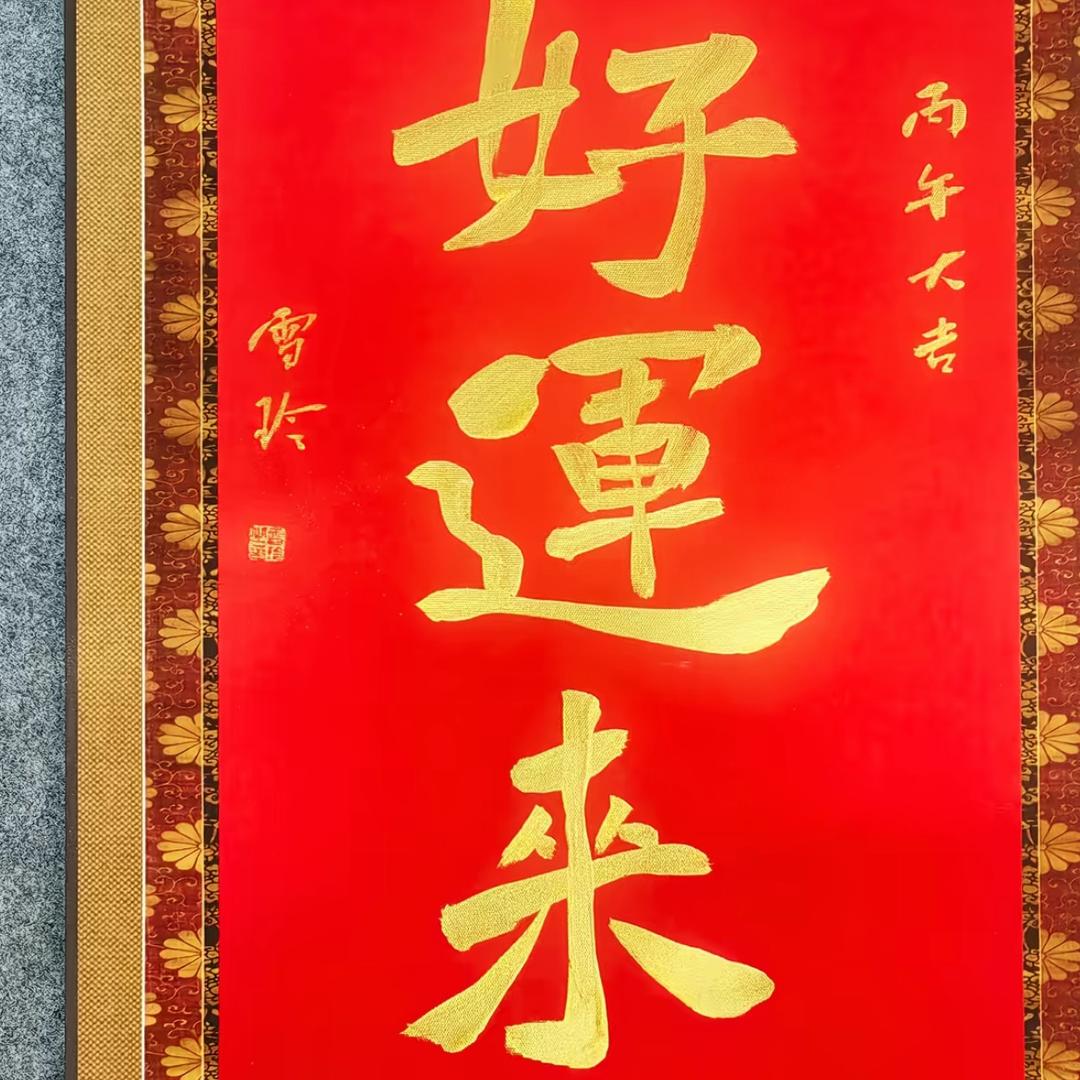 丙午大吉
好運來
雪玲